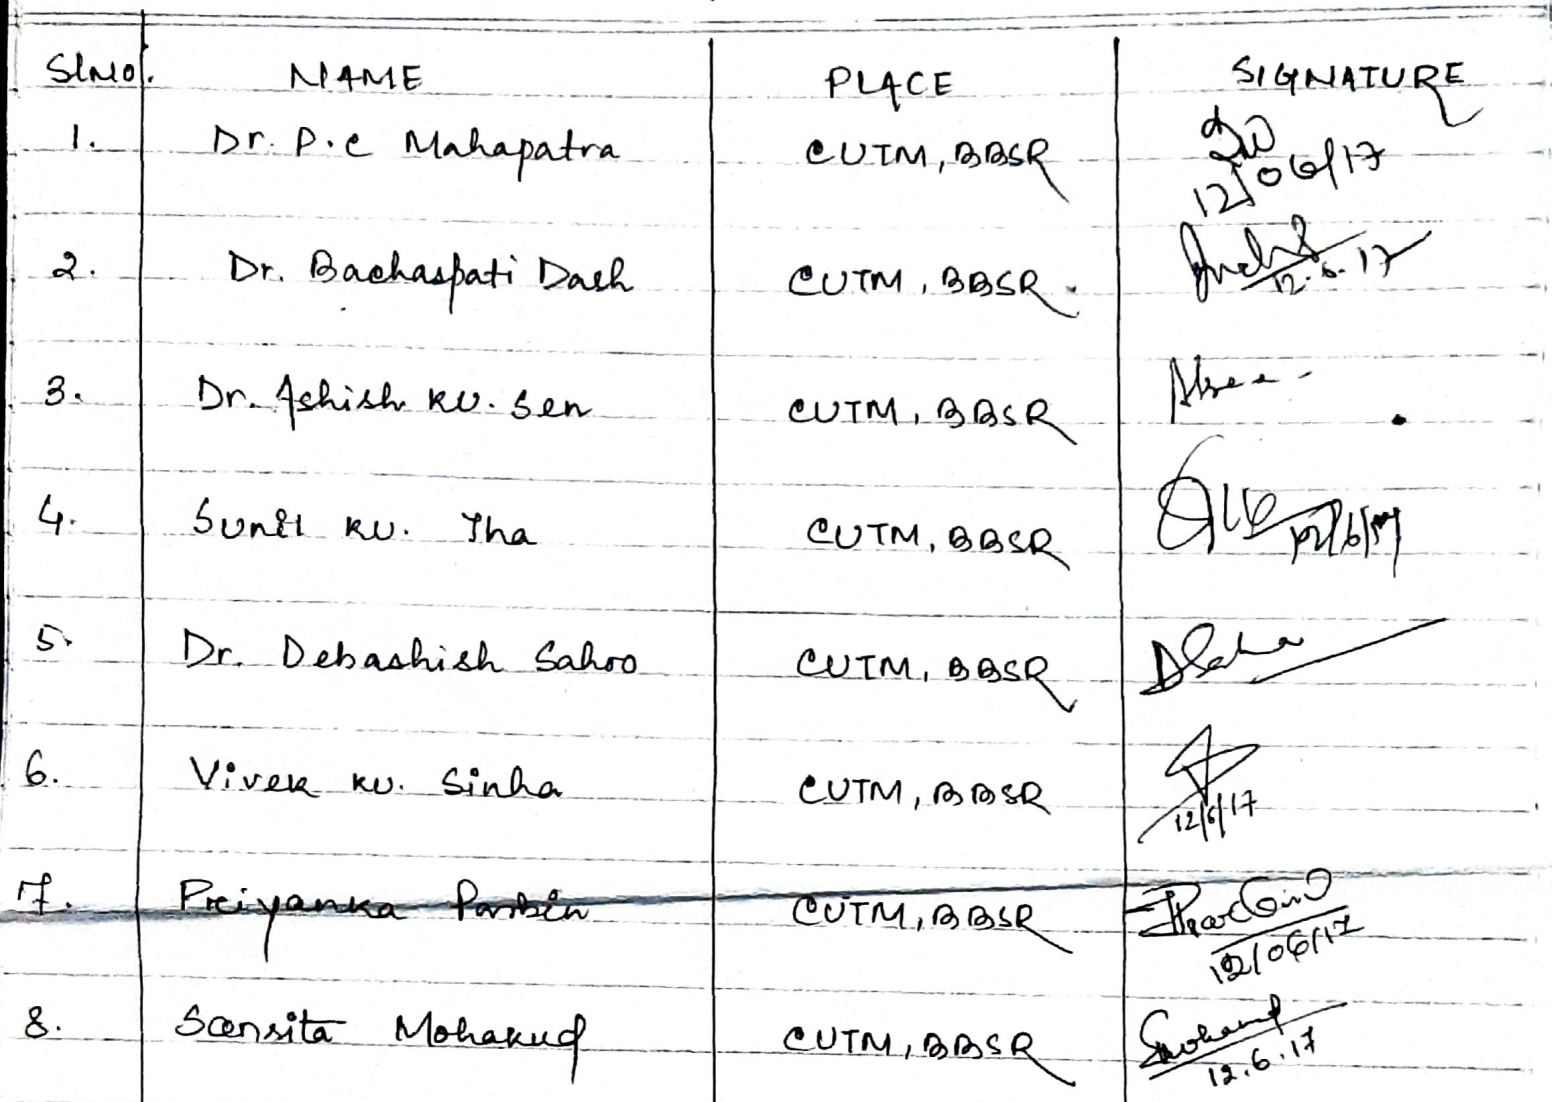 Sl No. NAME PLACE SIGNATURE
1. Dr. P.C Mahapatra CUTM, BBSR 12/06/17
2. Dr. Bachaspati Dash CUTM, BBSR. 12.6.17
3. Dr. Ashish KU. Sen CUTM, BBSR
4. Sunil KU. Jha CUTM, BBSR 12/6/17
5. Dr. Debashish Sahoo CUTM, BBSR
6. Vivek KU. Sinha CUTM, BBSR 12/6/17
7. Priyanka CUTM, BBSR 12/06/17
8. Sansita Mohakud CUTM, BBSR 12.6.17